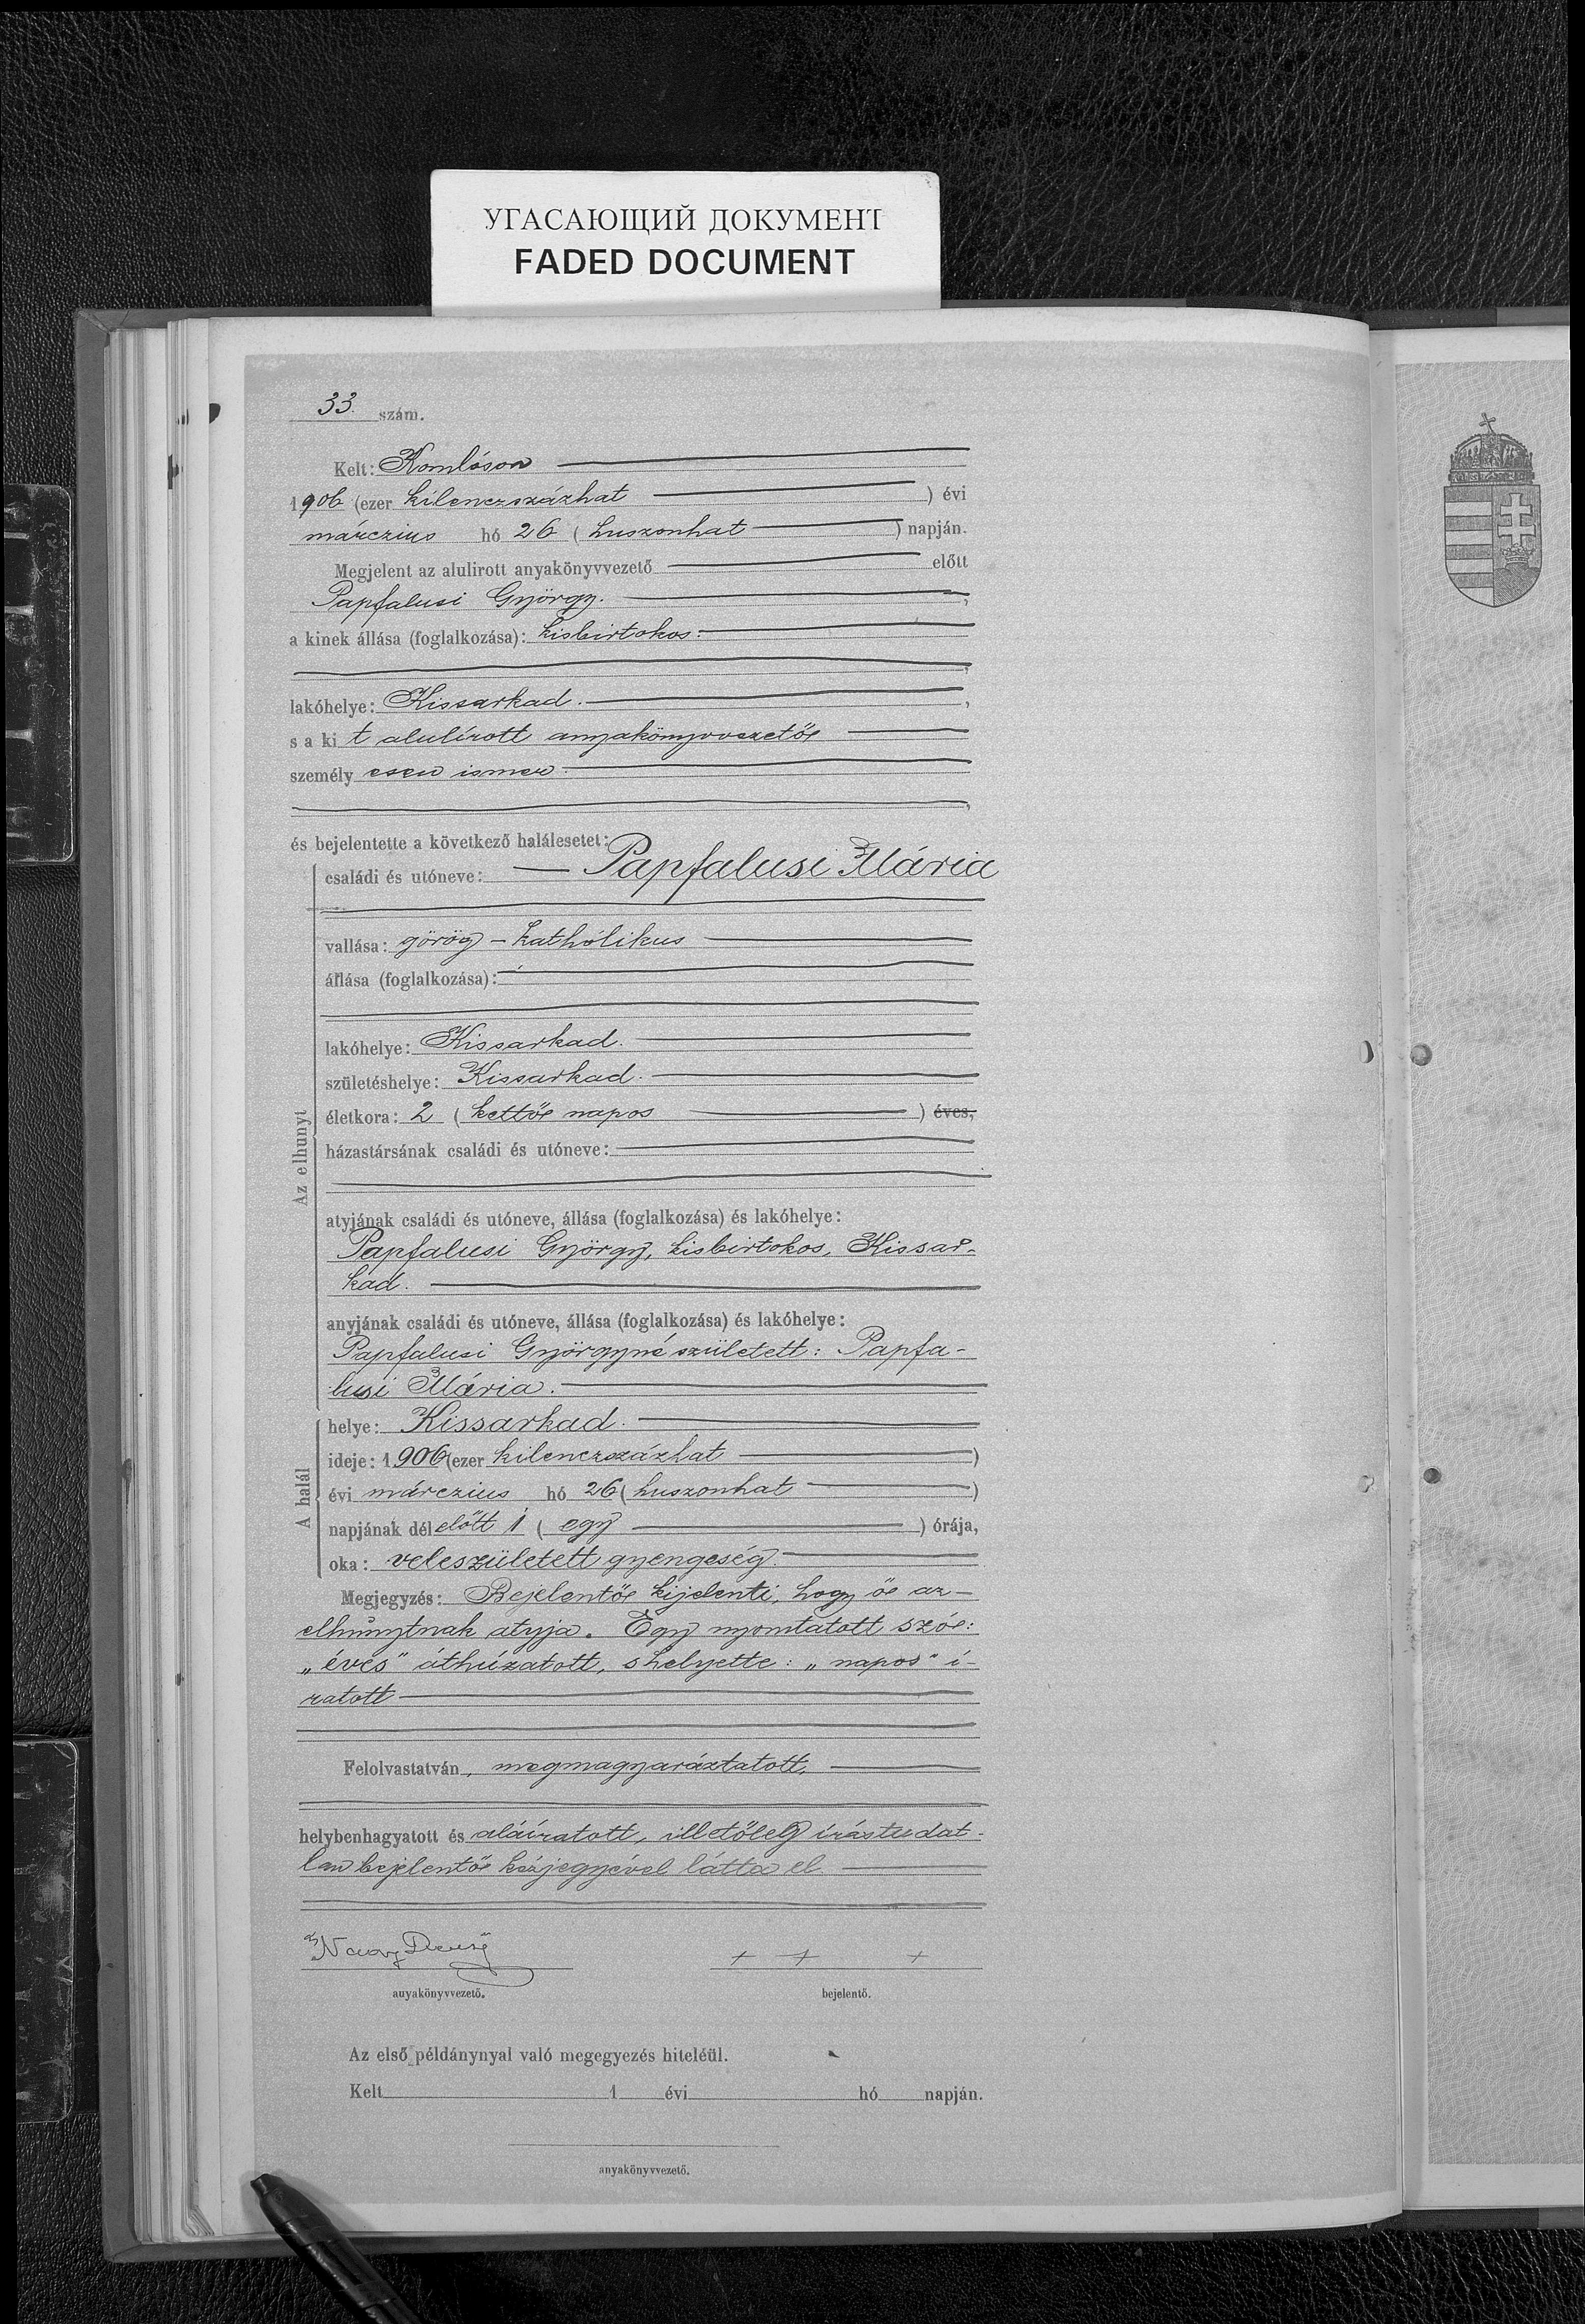 УГАСАЮЩИЙ ДОКУМЕНТ
FADED DOCUMENT
33. szám.
Kelt: Komlóson
1906 (ezer kilenczszázhat ) évi
márczius hó 26 ( huszonhat ) napján.
Megjelent az alulirott anyakönyvvezető előtt
Papfalusi György.
a kinek állása (foglalkozása): kisbirtokos.
lakóhelye: Kissarkad.
s a ki t alulírott anyakönyvvezető
személy esen ismer.
és bejelentette a következő halálesetet:
családi és utóneve: Papfalusi Mária
vallása: görög-kathólikus
állása (foglalkozása):
lakóhelye: Kissarkad.
születéshelye: Kissarkad.
életkora: 2 ( kettő napos ) éves,
házastársának családi és utóneve:
Az elhunyt
atyjának családi és utóneve, állása (foglalkozása) és lakóhelye:
Papfalusi György, kisbirtokos, Kissar-
kad.
anyjának családi és utóneve, állása (foglalkozása) és lakóhelye:
Papfalusi Györgyné született: Papfa-
lusi Mária.
A halál
helye: Kissarkad.
ideje: 1906 (ezer kilenczszázhat )
évi márczius hó 26 ( huszonhat )
napjának dél előtt 1 ( egy ) órája,
oka: veleszületett gyengeség.
Megjegyzés: Bejelentő kijelenti, hogy ő az-
elhunytnak atyja. Egy nyomtatott szó:
„éves" áthúzatott, s helyette: „napos" i-
ratott
Felolvastatván, megmagyaráztatott,
helybenhagyatott és aláíratott, illetőleg írástudat-
lan bejelentő kézjegyével látta el
Nagy Dezső + + +
anyakönyvvezető. bejelentő.
Az első példánynyal való megegyezés hiteléül.
Kelt 1 évi hó napján.
anyakönyvvezető.